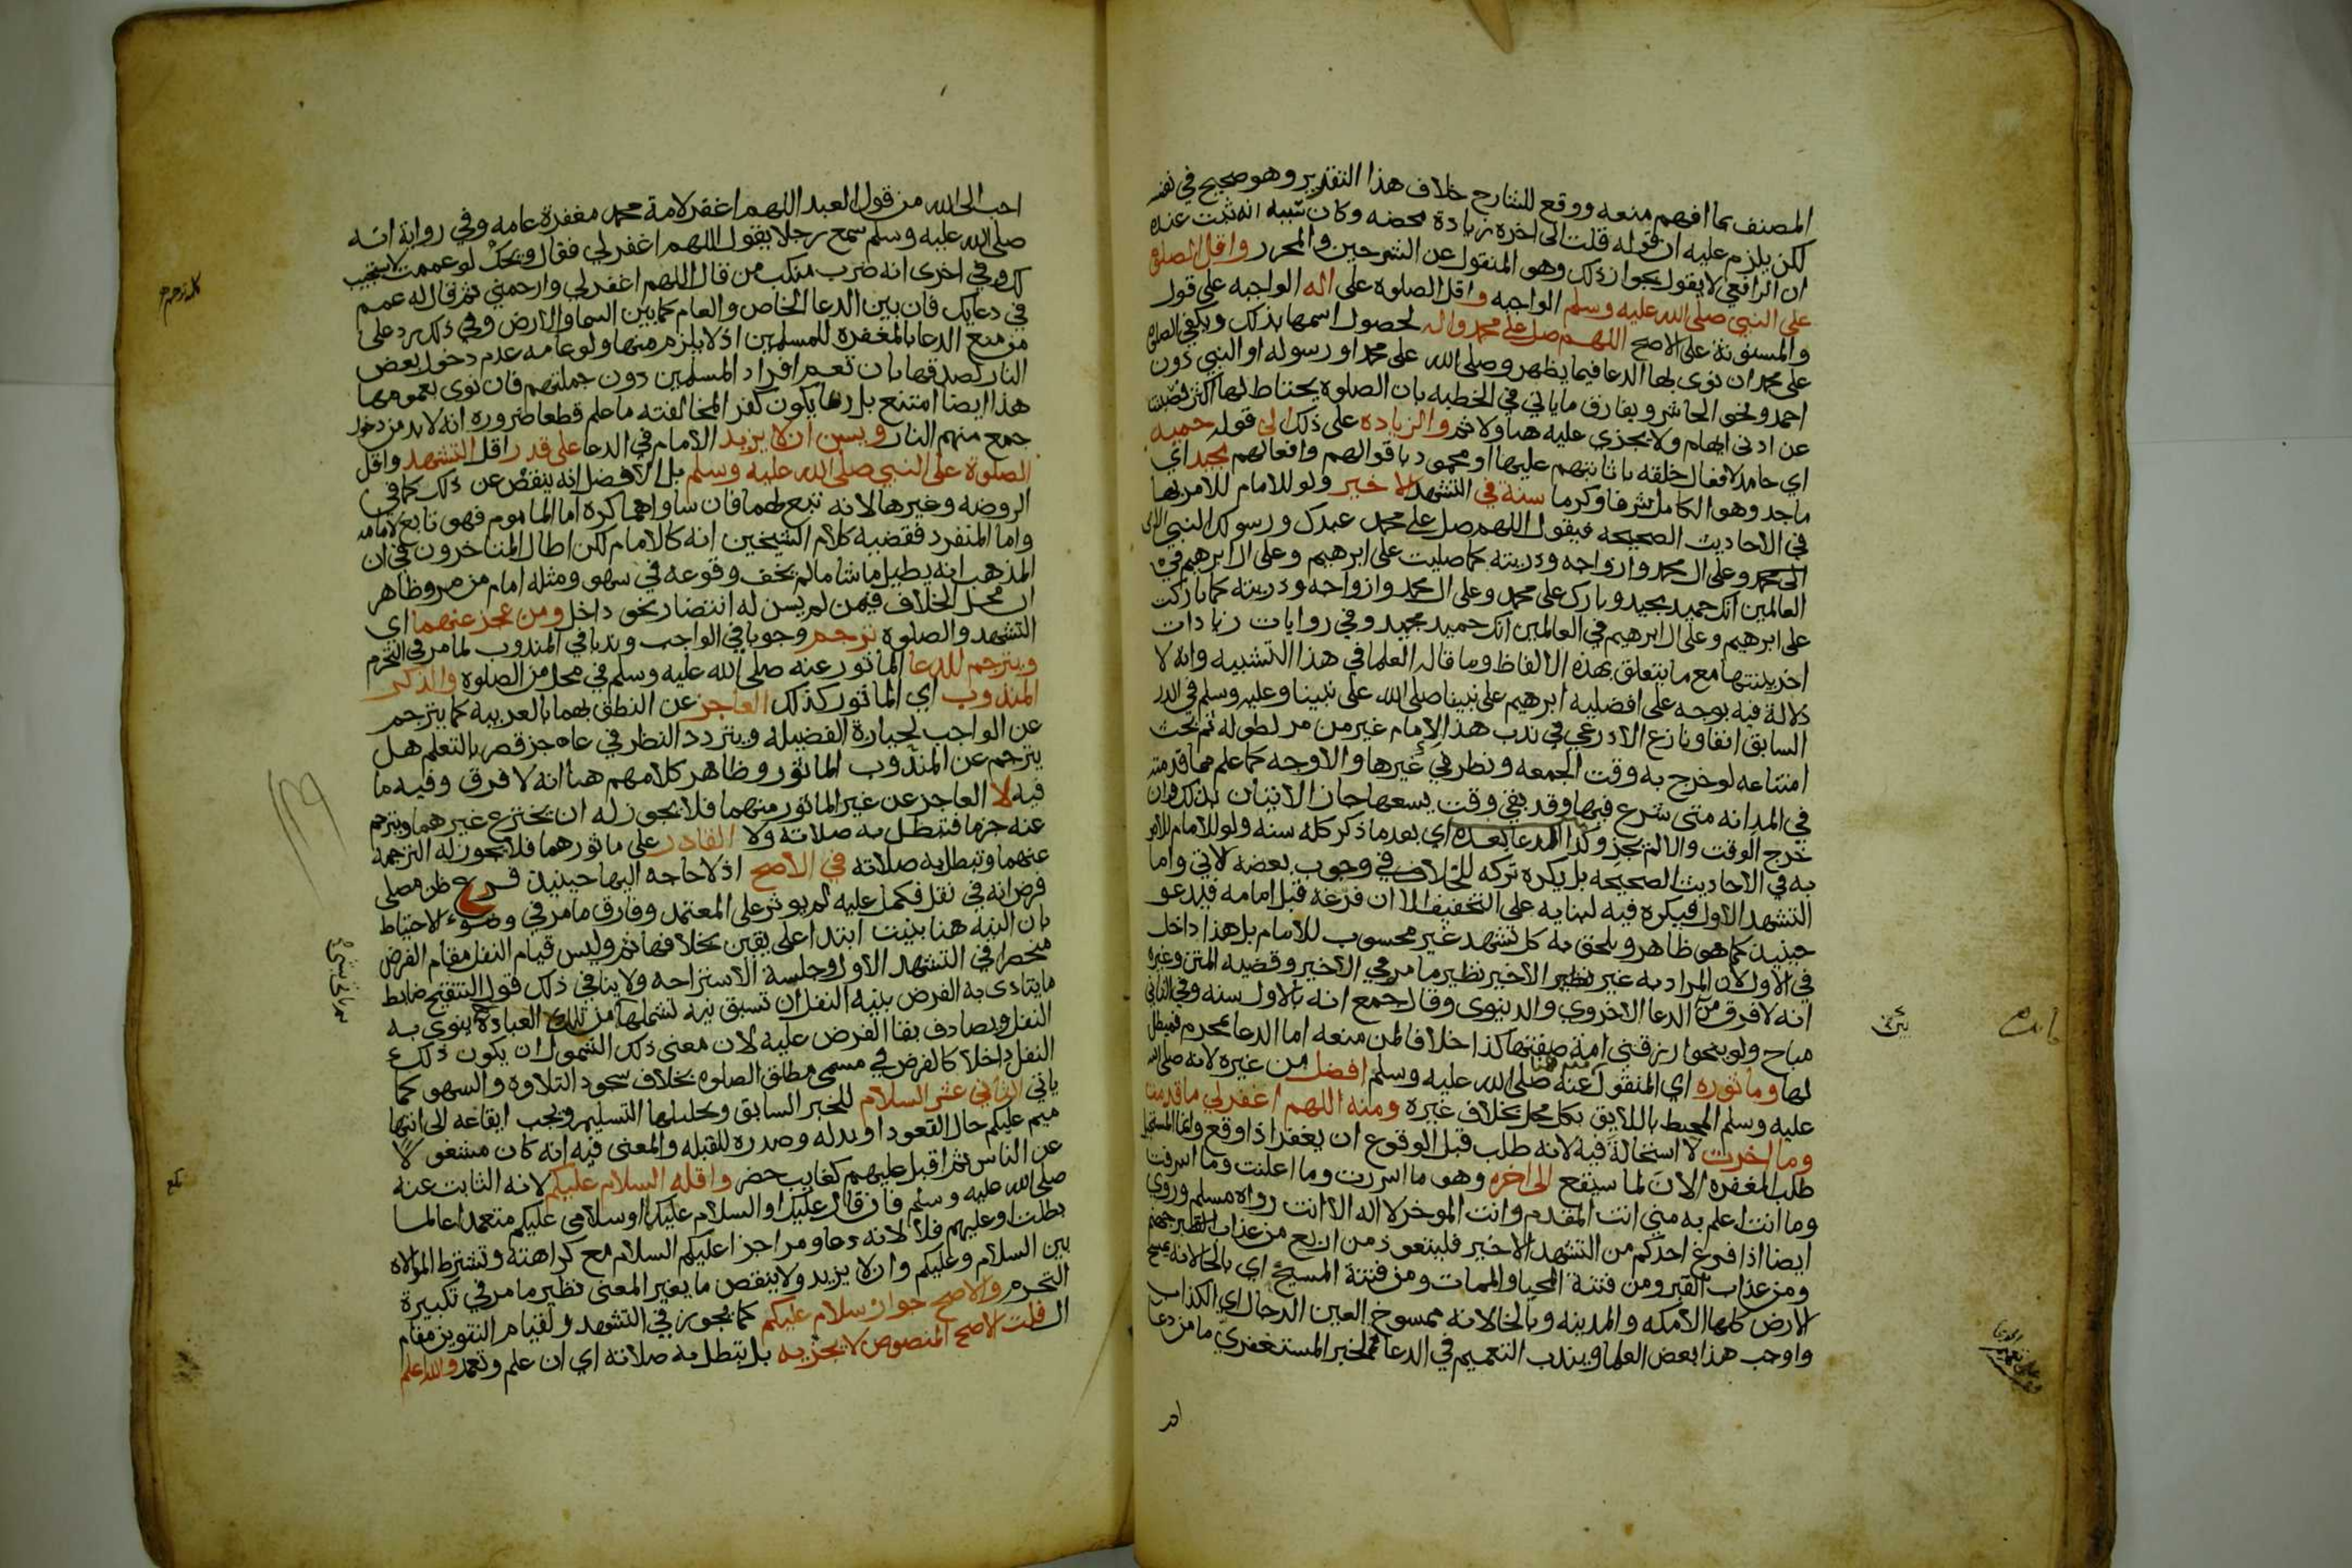 المصنف بما افهم منعه ووقع للشارح خلاف هذا التقدير وهو صحيح في نفسه
لكن يلزم عليه ان قوله قلت الى اخره زيادة محضه وكان سببه انه ثبت عنده
ان الرافعي لا يقول بجواز ذلك وهو المنقول عن الشرحين والمحرر واقل الصلوة
على النبي صلى الله عليه وسلم الواجبه واقل الصلوة على اله الواجبه على قول
والمسنونة على الاصح اللهم صل على محمد واله لحصول اسمها بذلك ويكفي الصلاة
على محمد ان نوى بها الدعا فيما يظهر وصلى الله على محمد او رسوله او النبي دون
احمد ونحو الحاشر ويفارق ما ياتي في الخطبه بان الصلوة يحتاط لها اكثر فصينت
عن ادنى ايهام ولا يجزي عليه هنا ولا ثم والزيادة على ذلك الى قوله حميد
اي حامد لافعال خلقه باثابتهم عليها او محمود باقوالهم وافعالهم مجيد اي
ماجد وهو الكامل شرفا وكرما سنة في التشهد الاخير ولو للامام للامر بها
في الاحاديث الصحيحه فيقول اللهم صل على محمد عبدك ورسولك النبي الامي
وعلى ال محمد وازواجه وذريته كما صليت على ابرهيم وعلى ال ابرهيم في
العالمين انك حميد مجيد وبارك على محمد وعلى ال محمد وازواجه وذريته كما باركت
على ابرهيم وعلى ال ابرهيم في العالمين انك حميد مجيد وفي روايات زيادات
اخر بينتها مع ما يتعلق بهذه الالفاظ وما قاله العلما في هذا التشبيه وانه لا
دلالة فيه بوجه على افضليه ابرهيم على نبينا صلى الله على نبينا وعليه وسلم في الدر
السابق انفا ونازع الاذرعي في ندب هذا للامام غير من مر لطوله ثم بحث
امتناعه لو خرج به وقت الجمعه ونظر في غيرها والاوجه كما علم مما قدمته
في المد انه متى شرع فيها وقد بقي وقت يسعها جاز الاتيان بذلك وان
خرج الوقت والا لم يجز وكذا الدعا بعده اي بعد ما ذكر كله سنه ولو للامام للامر
به في الاحاديث الصحيحه بل يكره تركه للخلاف في وجوب بعضه لاتي واما
التشهد الاول فيكره فيه لبنايه على التخفيف الا ان فرغه قبل امامه فيدعو
حينيذ كما هو ظاهر ويلحق به كل تشهد غير محسوب للامام بل هذا داخل
في الاول لان المراد به غير الاخير نظير ما مر في الاخير وقضيه المتن وغيره
انه لا فرق من الدعا الاخروي والدنيوي وقال جمع انه بالاول سنه وفي الثاني
مباح ولو بنحو ارزقني امة صفتها كذا خلافا لمن منعه اما الدعا بمحرم فمبطل
لها وماثوره اي المنقول عنه صلى الله عليه وسلم افضل من غيره لانه صلى الله
عليه وسلم المحيط باللايق بكل محل بخلاف غيره ومنه اللهم اغفر لي ما قدمت
وما اخرت لا استحالة فيه لانه طلب قبل الوقوع ان يغفر اذا وقع وانما المستحيل
طلب المغفرة الان لما سيقع الى اخره وهو ما اسررت وما اعلنت وما اسرفت
وما انت اعلم به مني انت المقدم وانت الموخر لا اله الا انت رواه مسلم وروي
ايضا اذا فرغ احدكم من التشهد الاخير فليتعوذ من اربع من عذاب جهنم
ومن عذاب القبر ومن فتنة المحيا والممات ومن فتنة المسيح اي بالحا لانه يمسح
الارض كلها الا مكه والمدينه وبالخا لانه ممسوخ العين الدجال اي الكذاب
واوجب هذا بعض العلما ويندب التعميم في الدعا لخبر المستغفري ما من دعا
احب الى الله من قول العبد اللهم اغفر لامة محمد مغفرة عامه وفي رواية انه
صلى الله عليه وسلم سمع رجلا يقول اللهم اغفر لي فقال ويحك لو عممت لاستجيب
لك وفي اخرى انه ضرب منكب من قال اللهم اغفر لي وارحمني ثم قال له عمم
في دعايك فان بين الدعا الخاص والعام كما بين السما والارض وفي ذلك رد على
من منع الدعا بالمغفرة للمسلمين اذ لا يلزم منها ولو عامه عدم دخول بعض
النار لصدقها بان تعم افراد المسلمين دون جملتهم فان نوى بعمومها
هذا ايضا امتنع بل ربما يكون كفر المخالفته ما علم قطعا ضرورة انه لابد من دخول
جمع منهم النار ويسن ان لا يزيد الامام في الدعا على قدر اقل التشهد واقل
الصلوة على النبي صلى الله عليه وسلم بل الافضل انه ينقص عن ذلك كما في
الروضه وغيرها لانه تبع لهما فان ساواهما كره اما الماموم فهو تابع لامامه
واما المنفرد فقضيه كلام الشيخين انه كالامام لكن اطال المتاخرون في ان
المذهب انه يطيل ما شا ما لم يخف وقوعه في سهو ومثله امام من مر وظاهر
ان محل الخلاف فيمن لم يسن له انتظار نحو داخل ومن عجز عنهما اي
التشهد والصلوة ترجم وجوبا في الواجب وندبا في المندوب لما مر في التحرم
ويترجم للدعا الماثور عنه صلى الله عليه وسلم في محل من الصلوة والذكر
المندوب اي الماثور كذلك العاجز عن النطق بهما بالعربيه كما يترجم
عن الواجب لحيازة الفضيله ويتردد النظر في عاجز قصر بالتعلم هل
يترجم عن المندوب الماثور وظاهر كلامهم هنا انه لا فرق وفيه ما
فيه لا العاجز عن غير الماثور منهما فلا يجوز له ان يخترع غيرهما ويترجم
عنه جزما فتبطل به صلاته ولا القادر على ماثورهما فلا يجوز له الترجمة
عنهما وتبطل به صلاته في الاصح اذ لا حاجه اليها حينيذ فرع ظن مصلي
فرض انه في نفل فكمل عليه لم يوثر على المعتمد وفارق ما مر في وضوء الاحتياط
بان النيه هنا بنيت ابتدا على يقين بخلافها ثم وليس قيام النفل مقام الفرض
منحصرا في التشهد الاول وجلسة الاستراحه ولا ينافي ذلك قول التنقيح ضابط
ما يتادى به الفرض بنيه النفل ان تسبق نيه تشملها من تلك العبادة ينوي به
النفل ويصادف بقا الفرض عليه لان معنى ذلك الشمول ان يكون ذلك
النفل داخلا كالفرض في مسمى مطلق الصلوه بخلاف سجود التلاوة والسهو كما
ياتي الثاني عشر السلام للخبر السابق وتحليلها التسليم ويجب ايقاعه الى انتها
ميم عليكم حال القعود او بدله وصدره للقبله والمعنى فيه انه كان مشغولا
عن الناس ثم اقبل عليهم كغايب حضر واقله السلام عليكم لانه الثابت عنه
صلى الله عليه وسلم فان قال عليك او السلام عليكما او سلامي عليكم متعمدا عالما
بطلت او عليهم فلا لانه دعا ومر اجزا عليكم السلام مع كراهته وتشترط الموالاة
بين السلام وعليكم وان لا يزيد ولا ينقص ما يغير المعنى نظير ما مر في تكبيرة
التحرم والاصح جواز سلام عليكم كما يجوز في التشهد ولقيام التنوين مقام
ال قلت الاصح المنصوص لا يجزيه بل تبطل به صلاته اي ان علم وتعمد والله اعلم